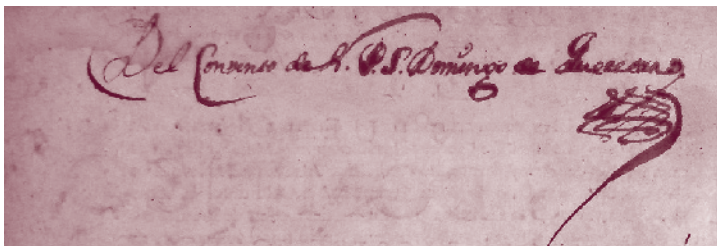 Del Conuento de N. P. S. Domingo de Queretaro